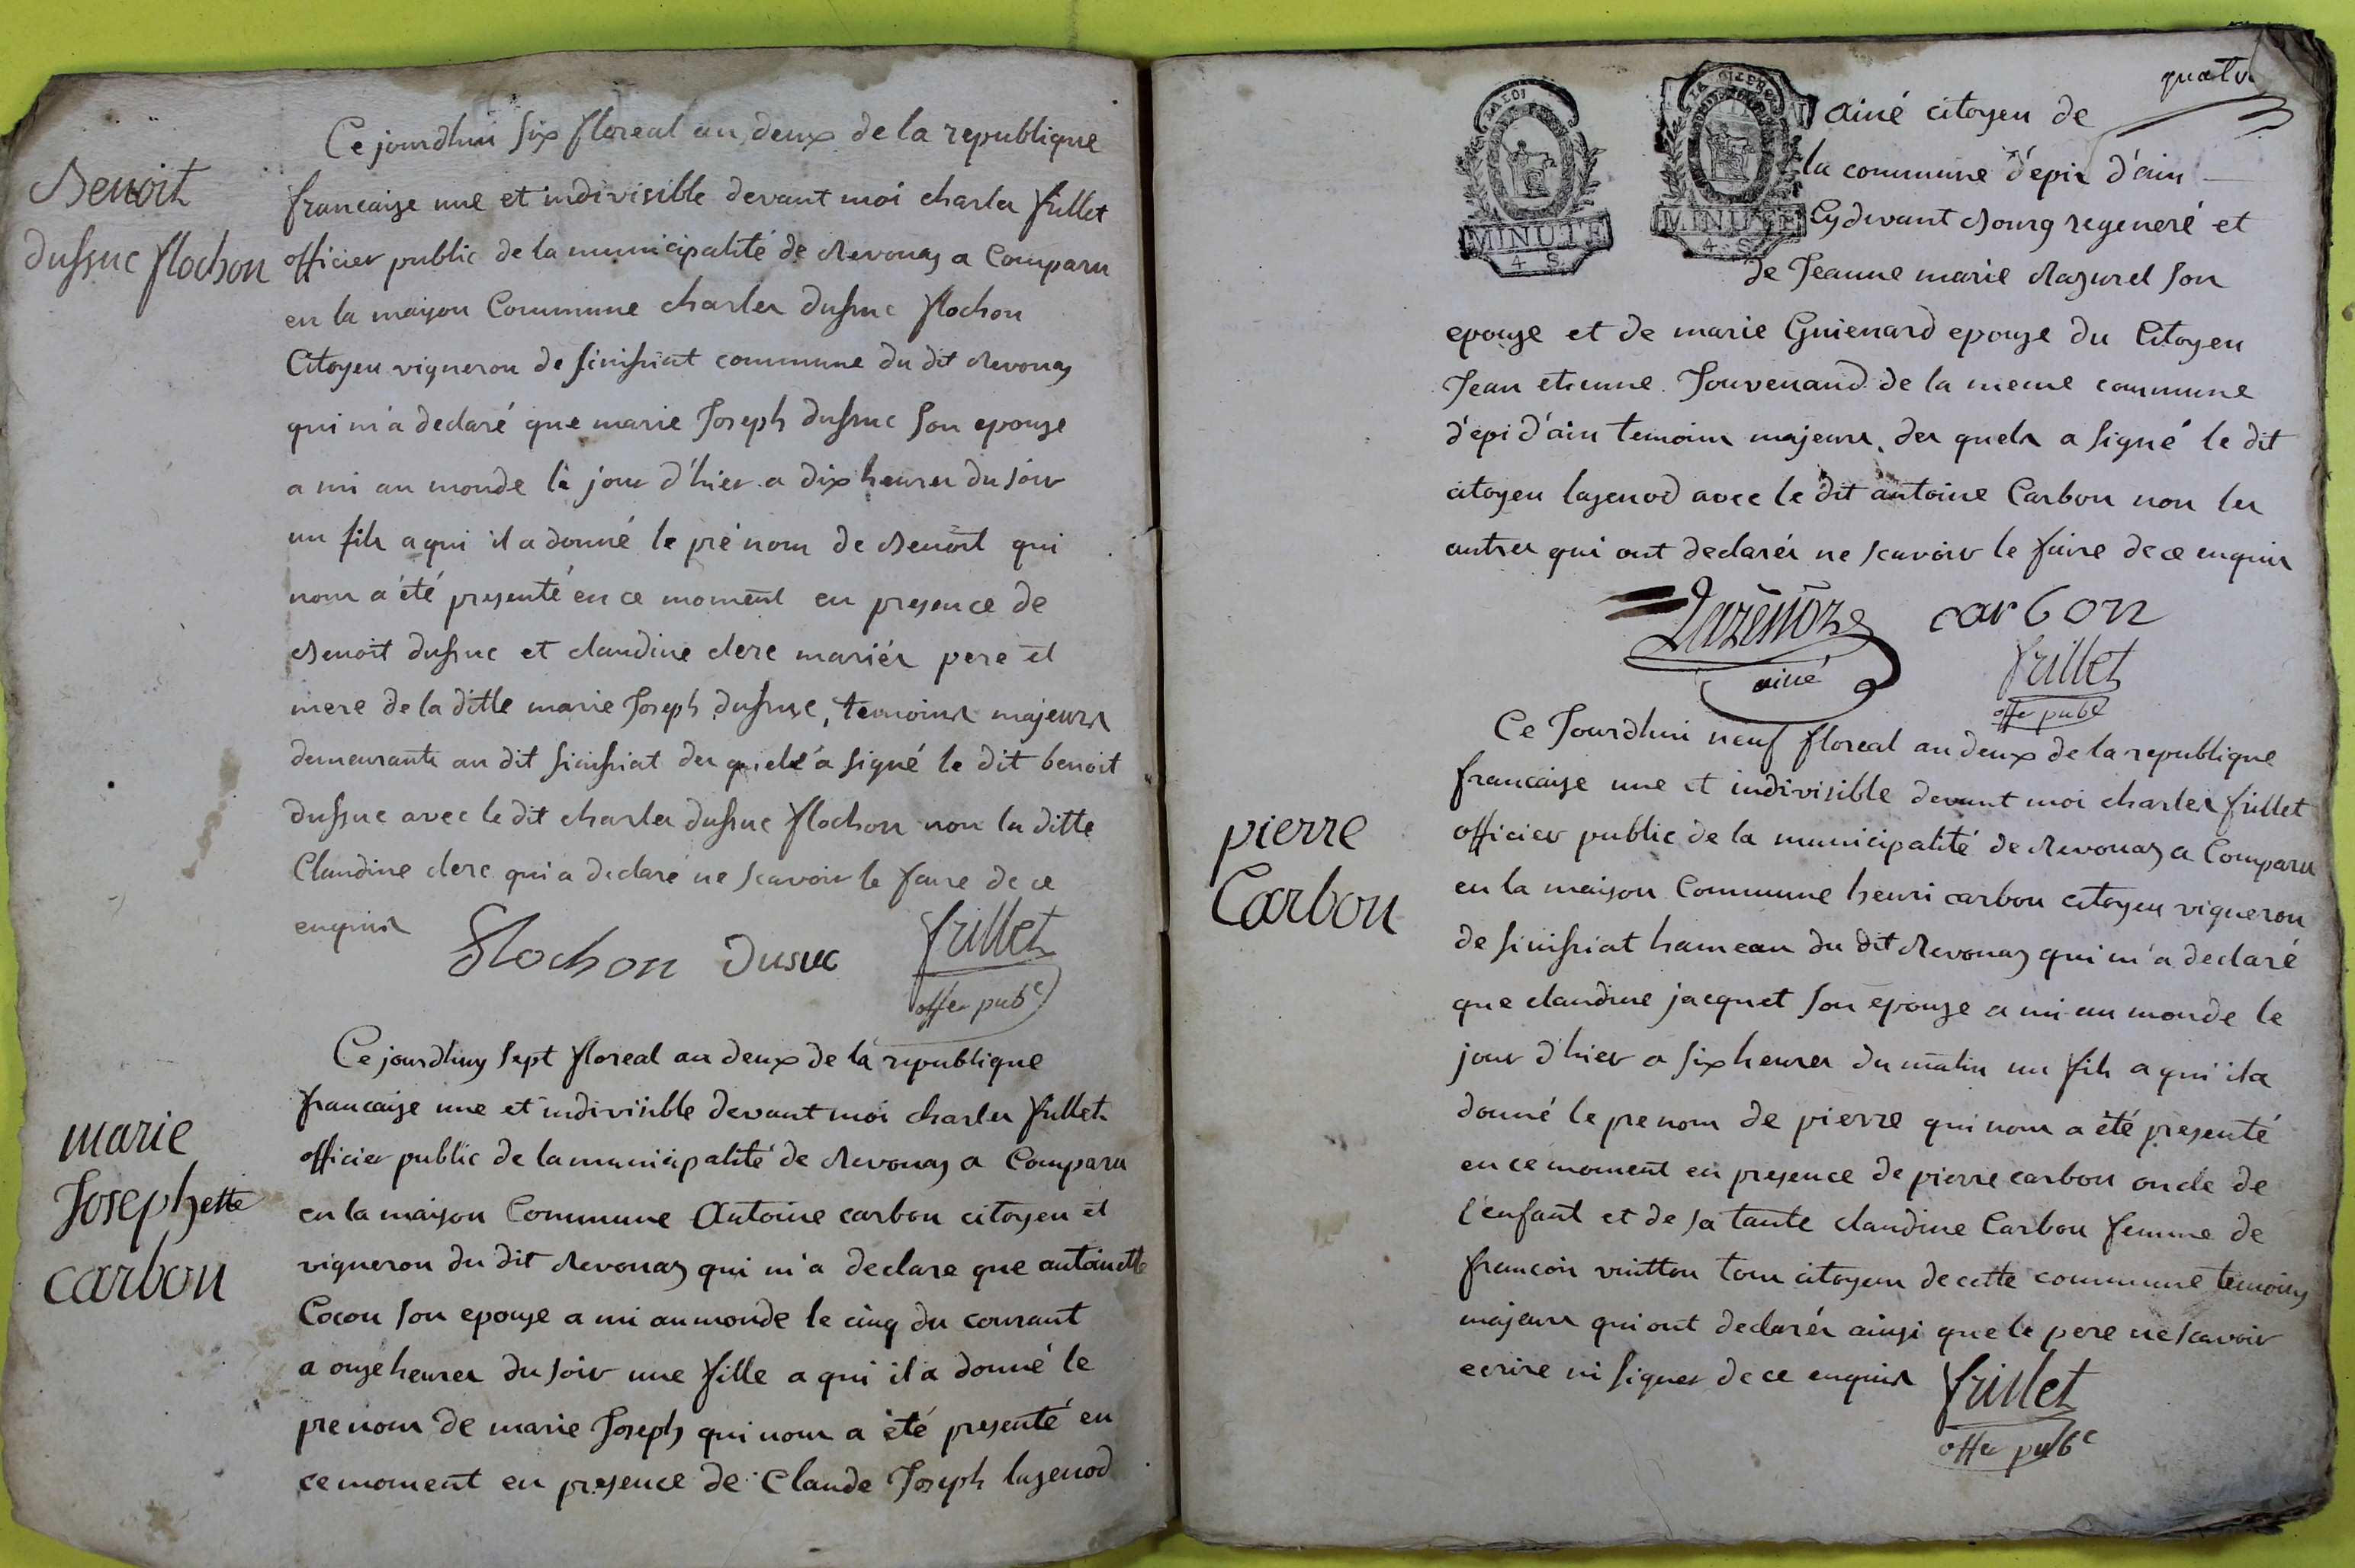 Benoit
dussuc flochon
Ce jourdhui six floreal an deux de la republique
francaise une et indivisible devant moi charles frillet
officier public de la municipalité de Revonas a Comparu
en la maison Commune charles dussuc flochon
Citoyen vigneron de sinissiat commune du dit Revonas
qui m'a declaré que marie Joseph dussuc son epouse
a mis au monde le jour d'hier a dix heures du soir
un fils a qui il a donné le prénom de Benoit qui
nous a été presenté en ce moment en presence de
Benoit dussuc et claudine clerc mariés pere et
mere de la ditte marie Joseph dussuc, temoins majeurs
demeurants au dit sinissiat des quels a signé le dit benoit
dussuc avec le dit charles dussuc flochon non la ditte
Claudine clerc qui a declaré ne scavoir le faire de ce
enquis
flochon dusuc frillet
offer pubc
marie
Josephette
carbon
Ce jourdhuy sept floreal an deux de la republique
francaise une et indivisible devant moi charles frillet
officier public de la municipalité de Revonas a Comparu
en la maison Commune Antoine carbon citoyen et
vigneron du dit Revonas qui m'a declare que antoinette
Cocon son epouse a mis au monde le cinq du courant
a onze heures du soir une fille a qui il a donné le
prenom de marie Joseph qui nous a été presenté en
ce moment en presence de Claude Joseph lazenod
quatre
LA LOI
MINUTE
4. S.
MINUTE
4. S.
ainé citoyen de
la commune d'épis d'ain
Cydevant Bourg regeneré et
de Jeanne marie Mazurel son
epouse et de marie Guienard epouse du Citoyen
Jean etienne Jouvenand de la meme commune
d'épi d'ain temoins majeurs des quels a signé le dit
citoyen lazenod avec le dit antoine Carbon non les
autres qui ont declarés ne scavoir le faire de ce enquis
carbon
ainé
frillet
offer pubc
pierre
Carbon
Ce Jourdhui neuf floreal an deux de la republique
francaise une et indivisible devant moi charles frillet
officier public de la municipalité de Revonas a Comparu
en la maison Commune henri carbon citoyen vigneron
de sinissiat hameau du dit Revonas qui m'a declaré
que claudine jacquet son epouse a mis au monde le
jour d'hier a six heures du matin un fils a qui il a
donné le prenom de pierre qui nous a été presenté
en ce moment en presence de pierre carbon oncle de
l'enfant et de sa tante claudine Carbon femme de
francois vuitton tous citoyens de cette commune temoins
majeurs qui ont declarés ainsi que le pere ne scavoir
ecrire ni signer de ce enquis
frillet
offer pubc